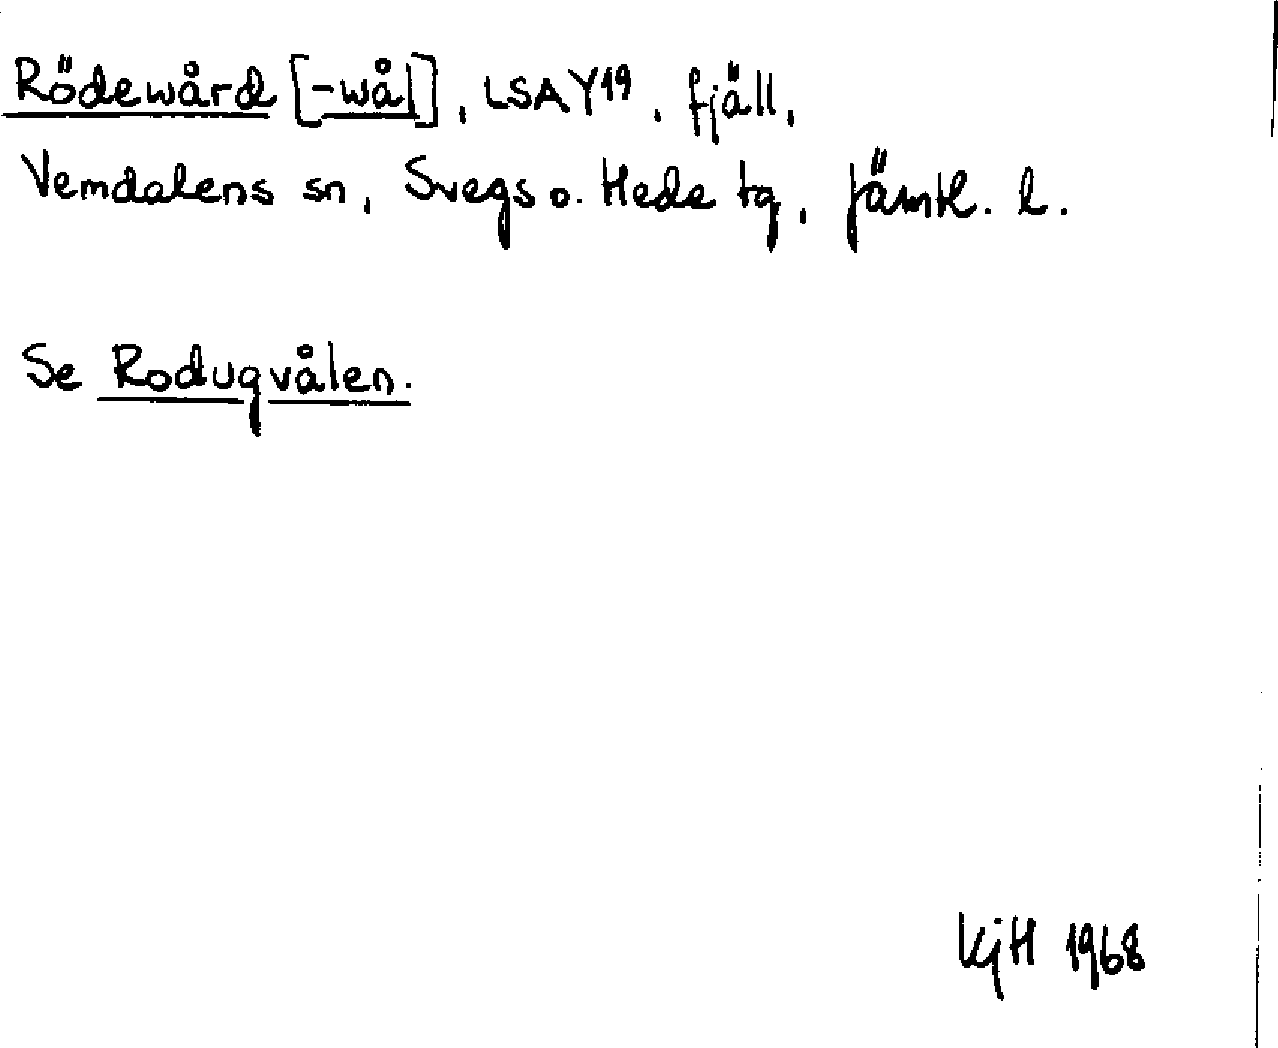 Rödewård [-wål], LSA Y19, fjäll,
Vemdalens sn, Svegs o. Hede tg, Jämtl. l.
Se Rodugvålen.
KjH 1968